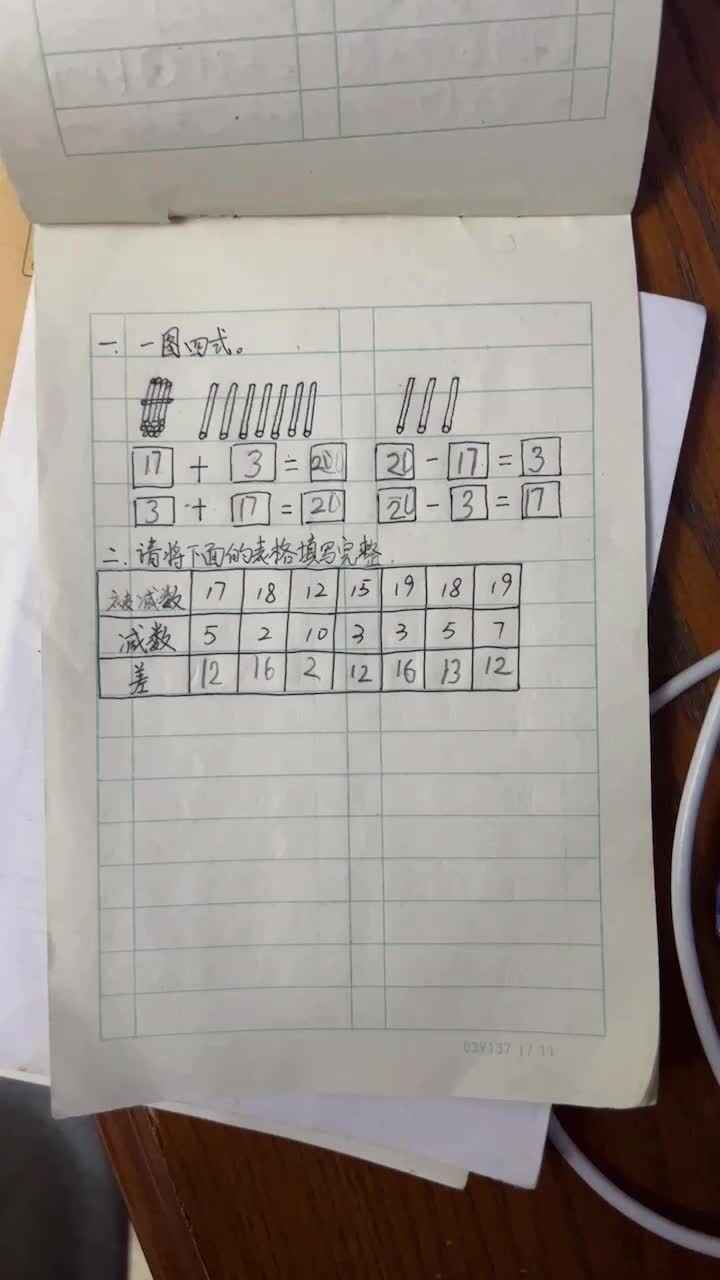 一. 一图四式。
17 + 3 = 20 20 - 17 = 3
3 + 17 = 20 20 - 3 = 17
二. 请将下面的表格填写完整.
被减数 17 18 12 15 19 18 19
减数 5 2 10 3 3 5 7
差 12 16 2 12 16 13 12